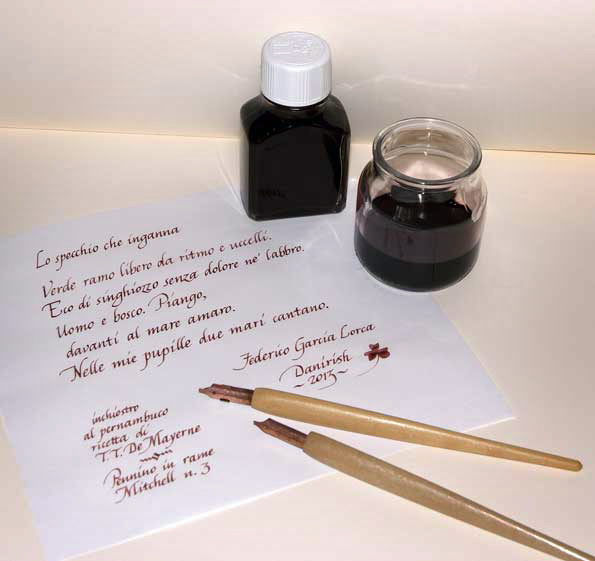 Lo specchio che inganna
Verde ramo libero da ritmo e uccelli.
Eco di singhiozzo senza dolore ne' labbro.
Uomo e bosco. Piango,
davanti al mare amaro.
Nelle mie pupille due mari cantano.
Federico Garcia Lorca
Danirish
~2013~
inchiostro
al pernambuco
ricetta di
T.T. De Mayerne
Pennino in rame
Mitchell n. 3